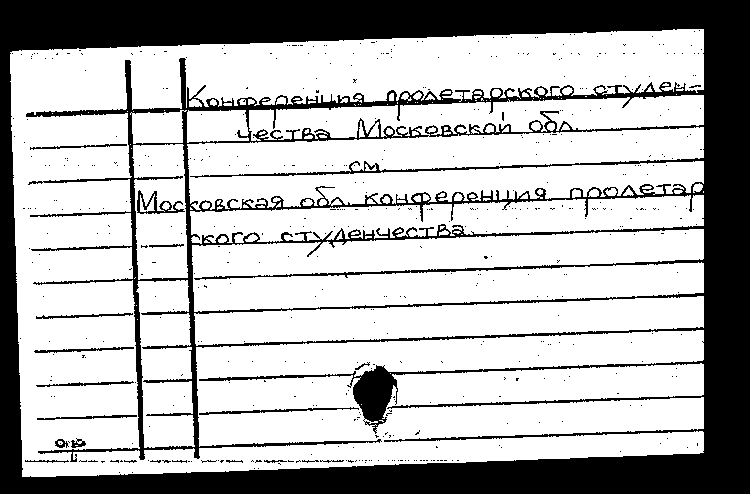 Конференция пролетарского студен-
чества Московской обл.
см.
Московская обл. конференция пролетар
ского студенчества.